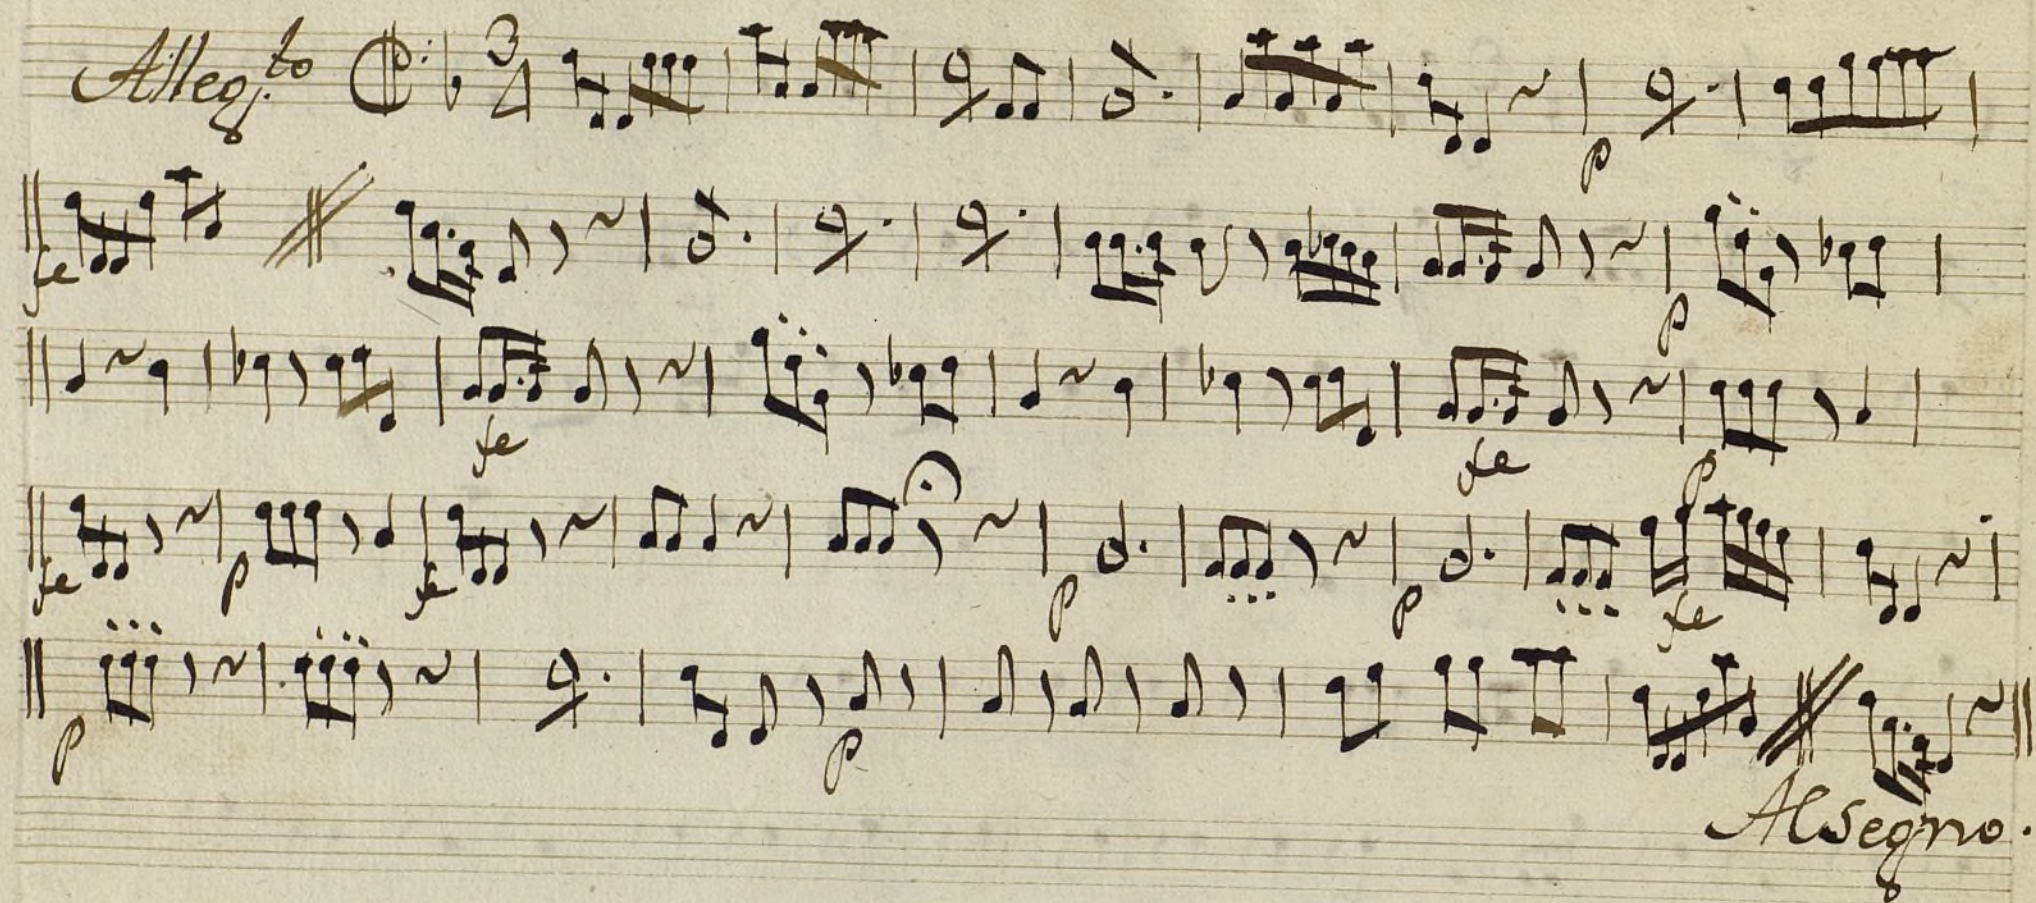 Alleg.to 3/4
p
fe p
fe fe p
fe p fe p p fe
p p
Al Segno.